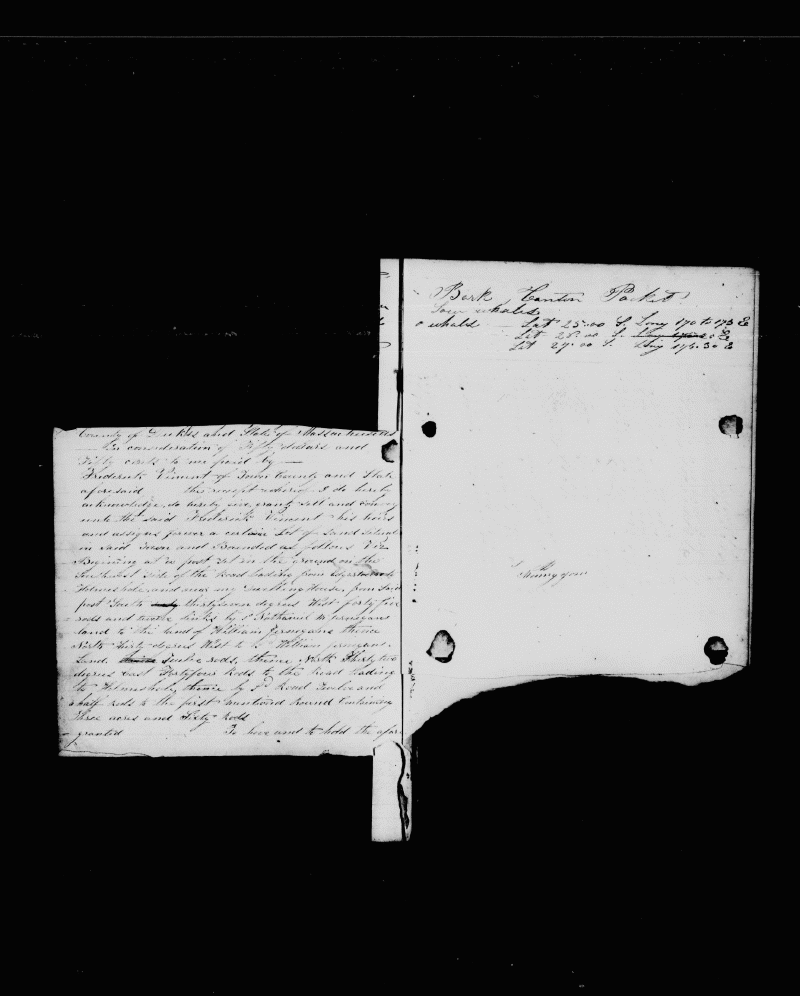 County of Dukes and State of Massachusetts
In consideration of Fifty dollars and
Fifty cents to me paid by
Frederick Viment of Town County and State
aforesaid this receipt whereof I do hereby
acknowledge, do hereby give, grant, sell and convey
unto the said Frederick Viment his heirs
and assigns forever a certain Lot of Land
in said Town and Bounded as follows Viz
Beginning at a post set in the ground on the
Southwest side of the Road leading from Edgartown to
Holmes hole, and near my Dwelling House, from said
post South thirtyseven degrees West forty five
rods and twelve links by Nathaniel M
land to the land of William Jernegans thence
North thirty degrees West to William Jernegans
Land twelve rods, thence North Thirty two
degrees East Fortyfour Rods to the road leading
to Holmeshole, thence by Sd Road Twelve and
a half rods to the first mentioned bound Containing
Three acres and Sixty Rods
granted To have and to hold the afore
Bark Canton Packet
Saw whales
whales Lat 25.00 S. Long 170 to 175 E
Lat 28.00 S. E
Lat 29.00 S. Long 175.30 E